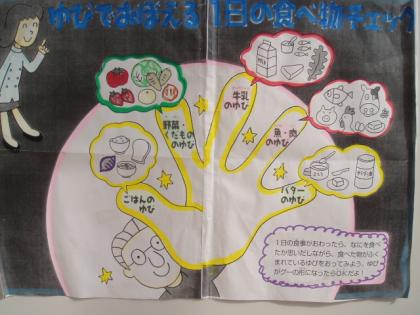 ゆびでおぼえる1日の食べ物チェック
牛乳
のゆび
野菜・
くだもの
のゆび
魚・肉
のゆび
ごはんの
ゆび
バター
のゆび
1日の食事がおわったら、なにを食べ
たか思いだしながら、食べた物がふく
まれているゆびをおってみよう。ゆび
がグーの形になったらOKだよ！